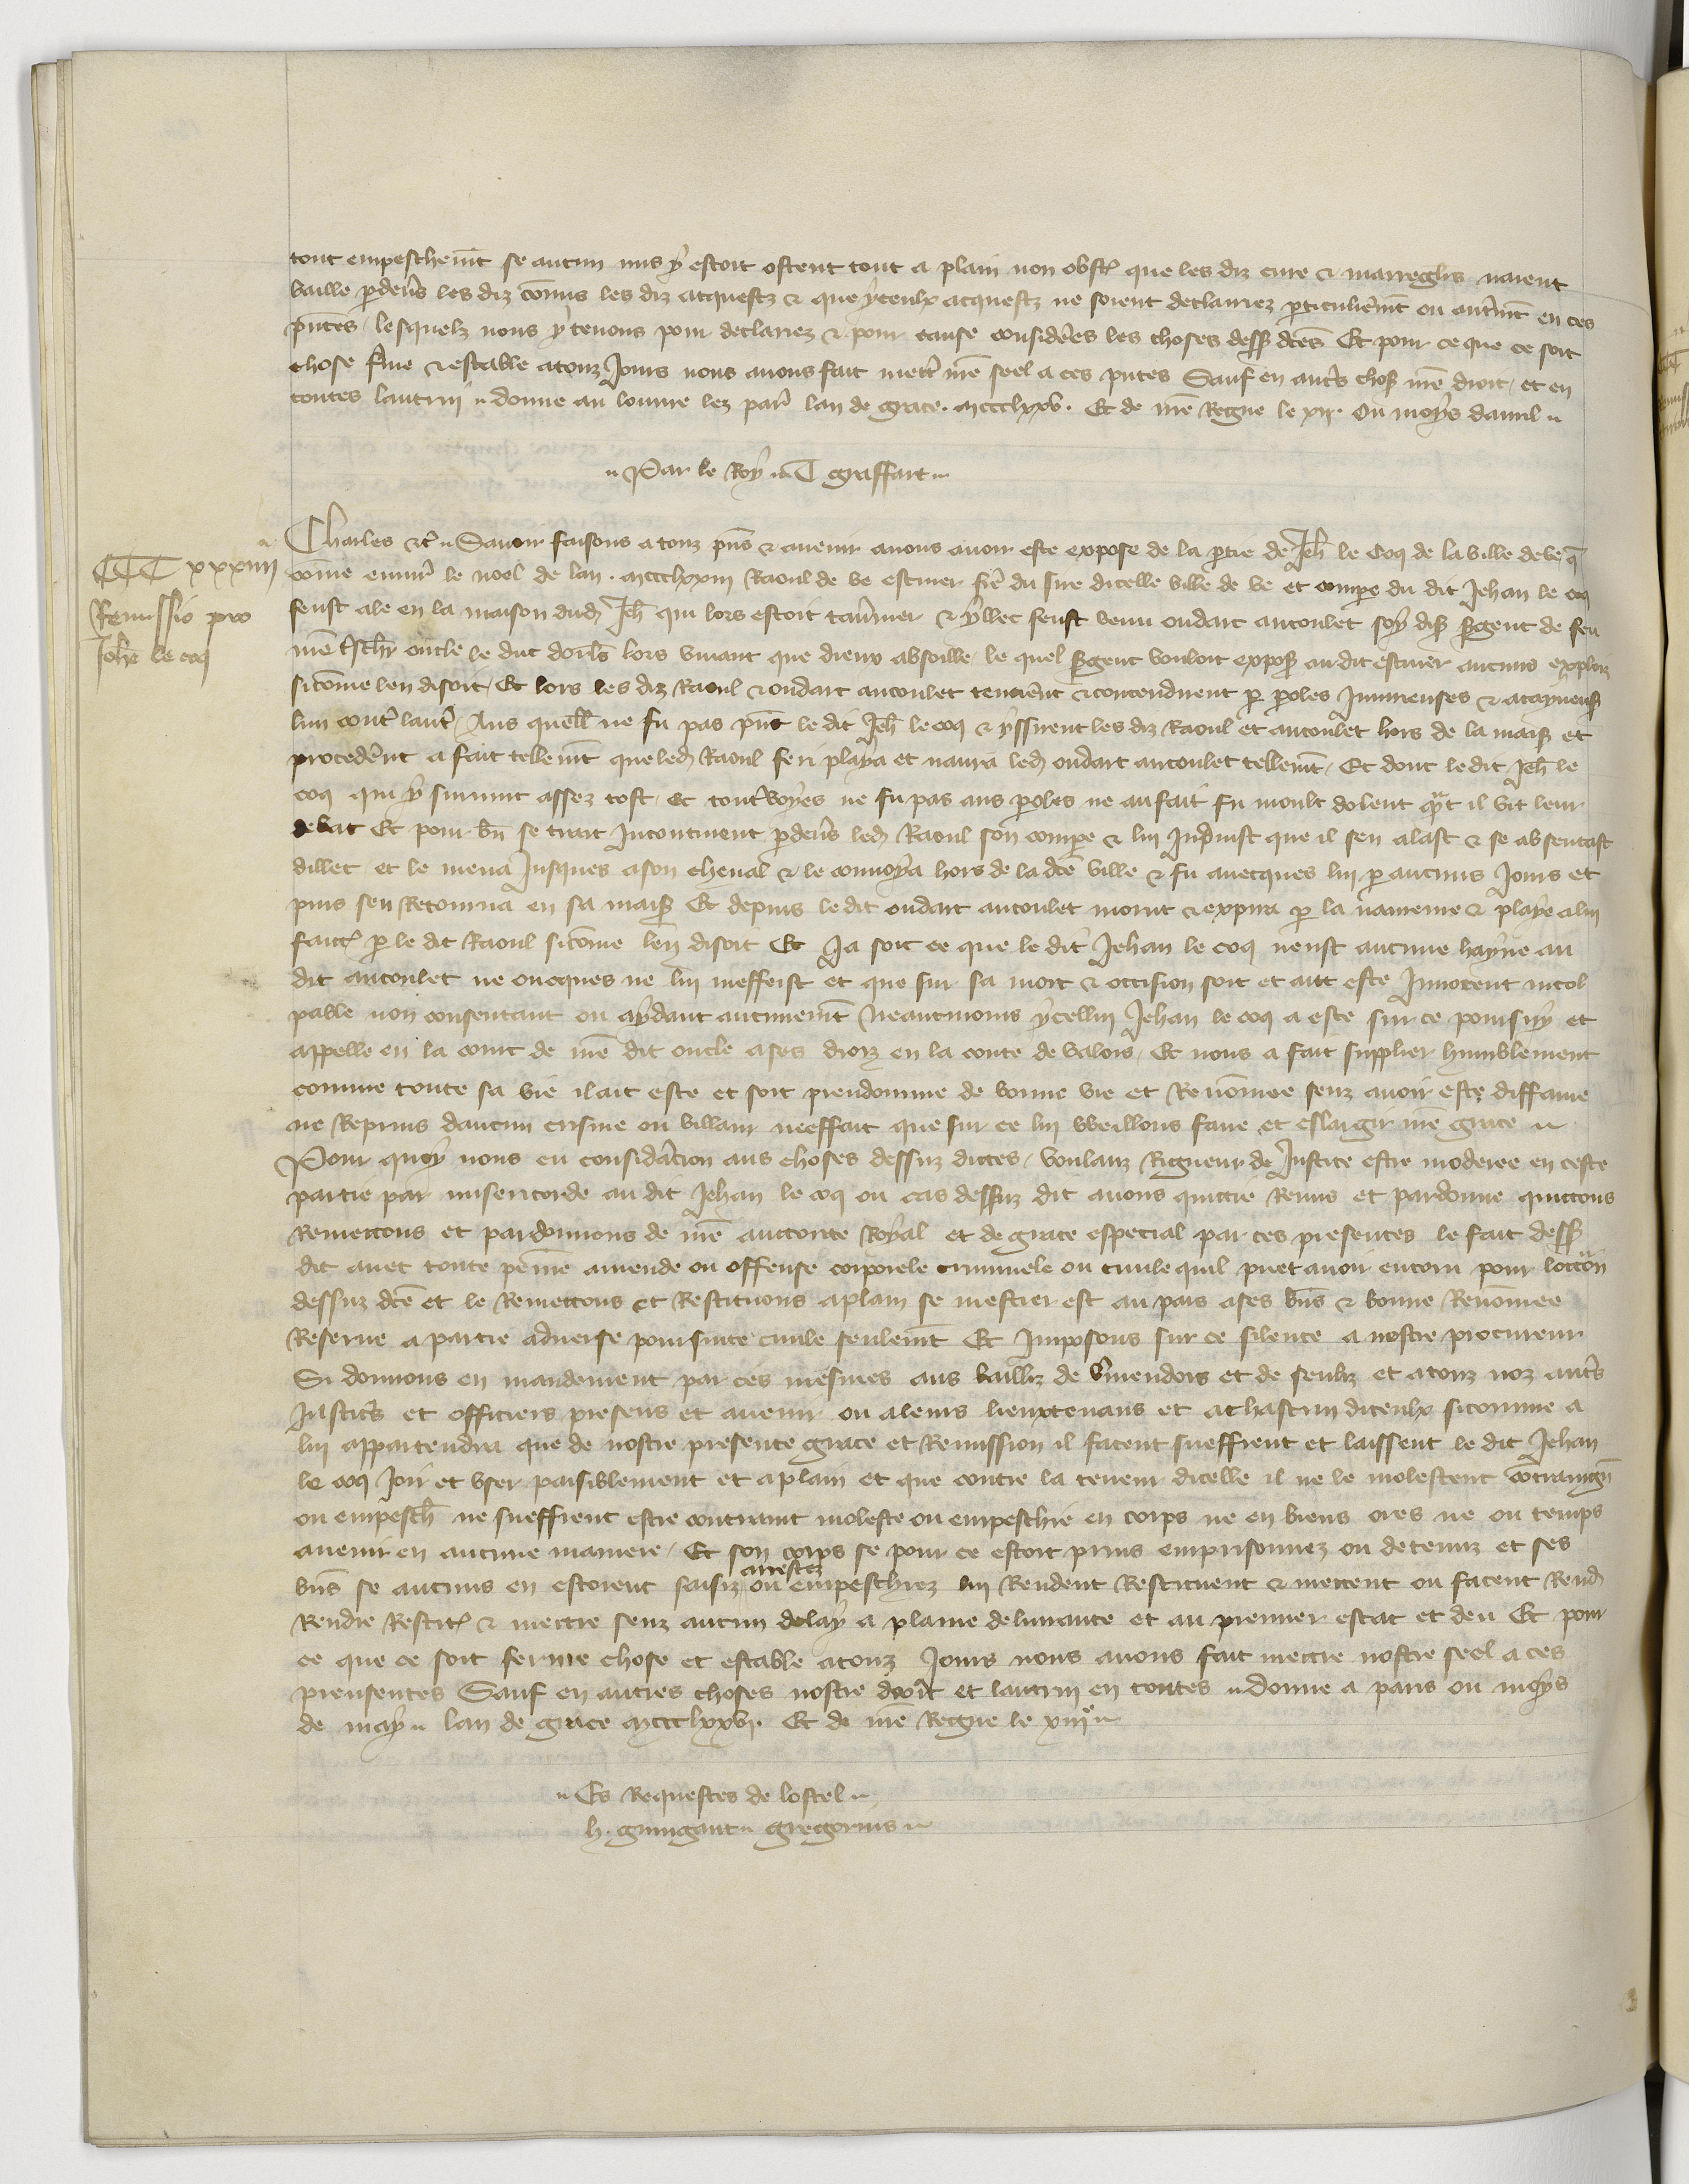 tout empeschemt se aucun mis y estoit ostent tout a plain non obst que les diz cure & marregliers naient
baille pdevs les diz comis les diz acquestz & que yceulx acquestz ne soient declairiez pticulieremt ou autremt en ces
pntes / lesquelz nous y tenons pour declariez & pour cause considerees les choses dess dces Et pour ce que ce soit
chose fme & estable a touz jours nous avons fait mettr nre seel a ces pntes Sauf en autrs choses nre droit / et en
toutes lautrui donne au louvre lez paris lan de grace . mccclxxv . Et de nre Regne le xii . Ou moys davril
Par le Roy T graffart
CCC xxxiiii
Remissio pro
Johe le coq
Charles &c Savoir faisons a touz pns & avenir a nous avoir este expose de la ptie de Jeh le Coq de la ville de ve q
come environ le noel de lan . mccclxxiii Raoul de ve escuier fre du sire dicelle ville de ve et compe du dit Jehan le coq
feust ale en la maison dud Jeh qui lors estoit tavernier & yllec feust venu oudart ancoulet soy dis sgent de feu
nre trescher oncle le duc dorls lors vivant que dieux absoille / le quel sgent vouloit exposer au dit escuier aucuns explois
sicome len disoit / Et lors les diz Raoul & oudart ancoulet tencerent & contendirent p poles Injurieuses & atayneuses
lun contr lautr / Aus quelles ne fu pas pnt le dit Jeh le coq & yssirent les diz Raoul et ancoulet hors de la mais et
procederent a fait tellemt que led Raoul feri playa et navra led oudart ancoulet tellemt / Et dont le dit Jeh le
coq qui y survint assez tost / et toutevoyes ne fu pas aus poles ne au fait fu moult dolent qt il vit leur
debat Et pour bn se trait Incontinent pdevs led Raoul son compe & lui Induist que il sen alast & se absentast
dillec et le mena Jusques a son cheval & le convoya hors de la dce ville & fu avecques lui p aucuns Jours et
puis sen Retourna en sa mais Et depuis le dit oudart ancoulet morut & expira p la navreure & playe a lui
faict p le dit Raoul sicome len disoit Et Ja soit ce que le dit Jehan le coq neust aucune hayne au
dit ancoulet ne oncques ne lui meffeist et que sur sa mort & occision soit et ait este Innocent incol
pable non consentant ou aydant aucunemt Neantmoins ycellui Jehan le coq a este sur ce poursuy et
appelle en la court de nre dit oncle a ses droiz en la conte de valois / Et nous a fait supplier humblement
comme toute sa vie il ait este et soit preudomme de bonne vie et Renomee senz avoir este diffame
ne Repruis daucun crisme ou villain meeffait que sur ce lui vveillons faire et eslargir nre grace
Pour quoy nous eu consideracion aus choses dessuz dictes / voulanz Rigueur de Justice estre moderee en ceste
partie par misericorde au dit Jehan le coq ou cas dessuz dit avons quittie Remis et pardonne quittons
Remettons et pardonnons de nre auctorite Royal et de grace especial par ces presentes le fait dess
dit avec toute peinne amende ou offense corporele criminele ou civile quil puet avoir encouru pour loccion
dessuz dce et le Remettons et Restituons a plain se mestier est au pais a ses bns & bonne Renomee
Reserve a partie adverse poursuite civile seulemt Et Imposons sur ce silence a nostre procureur
Si donnons en mandement par ces mesmes aus bailliz de vermendois et de senliz et a touz noz autrs
Justicrs et officiers presens et avenir ou a leurs lieuxtenans et a chascun diceulx sicomme a
lui appartendra que de nostre presente grace et Remission il facent sueffrent et laissent le dit Jehan
le coq Joir et user paisiblement et a plain et que contre la teneur dicelle il ne le molestent contraingn
ou empesch ne sueffrent estre contraint moleste ou empeschie en corps ne en biens ores ne ou temps
avenir en aucune maniere / Et son corps se pour ce estoit prins emprisonnez ou detenuz et ses
bns se aucuns en estoient saisiz arrestez ou empeschiez lui Rendent Restituent & mettent ou facent Rend
Rendre Restit & mettre senz aucun delay a plaine delivrance et au premier estat et deu Et pour
ce que ce soit ferme chose et estable a touz Jours nous avons fait mettre nostre seel a ces
preusentes Sauf en autres choses nostre droit et lautrui en toutes donne a paris ou moys
de may lan de grace mccclxxvi . Et de nre Regne le xiiie
Es Requestes de lostel
h . guingant gregorius